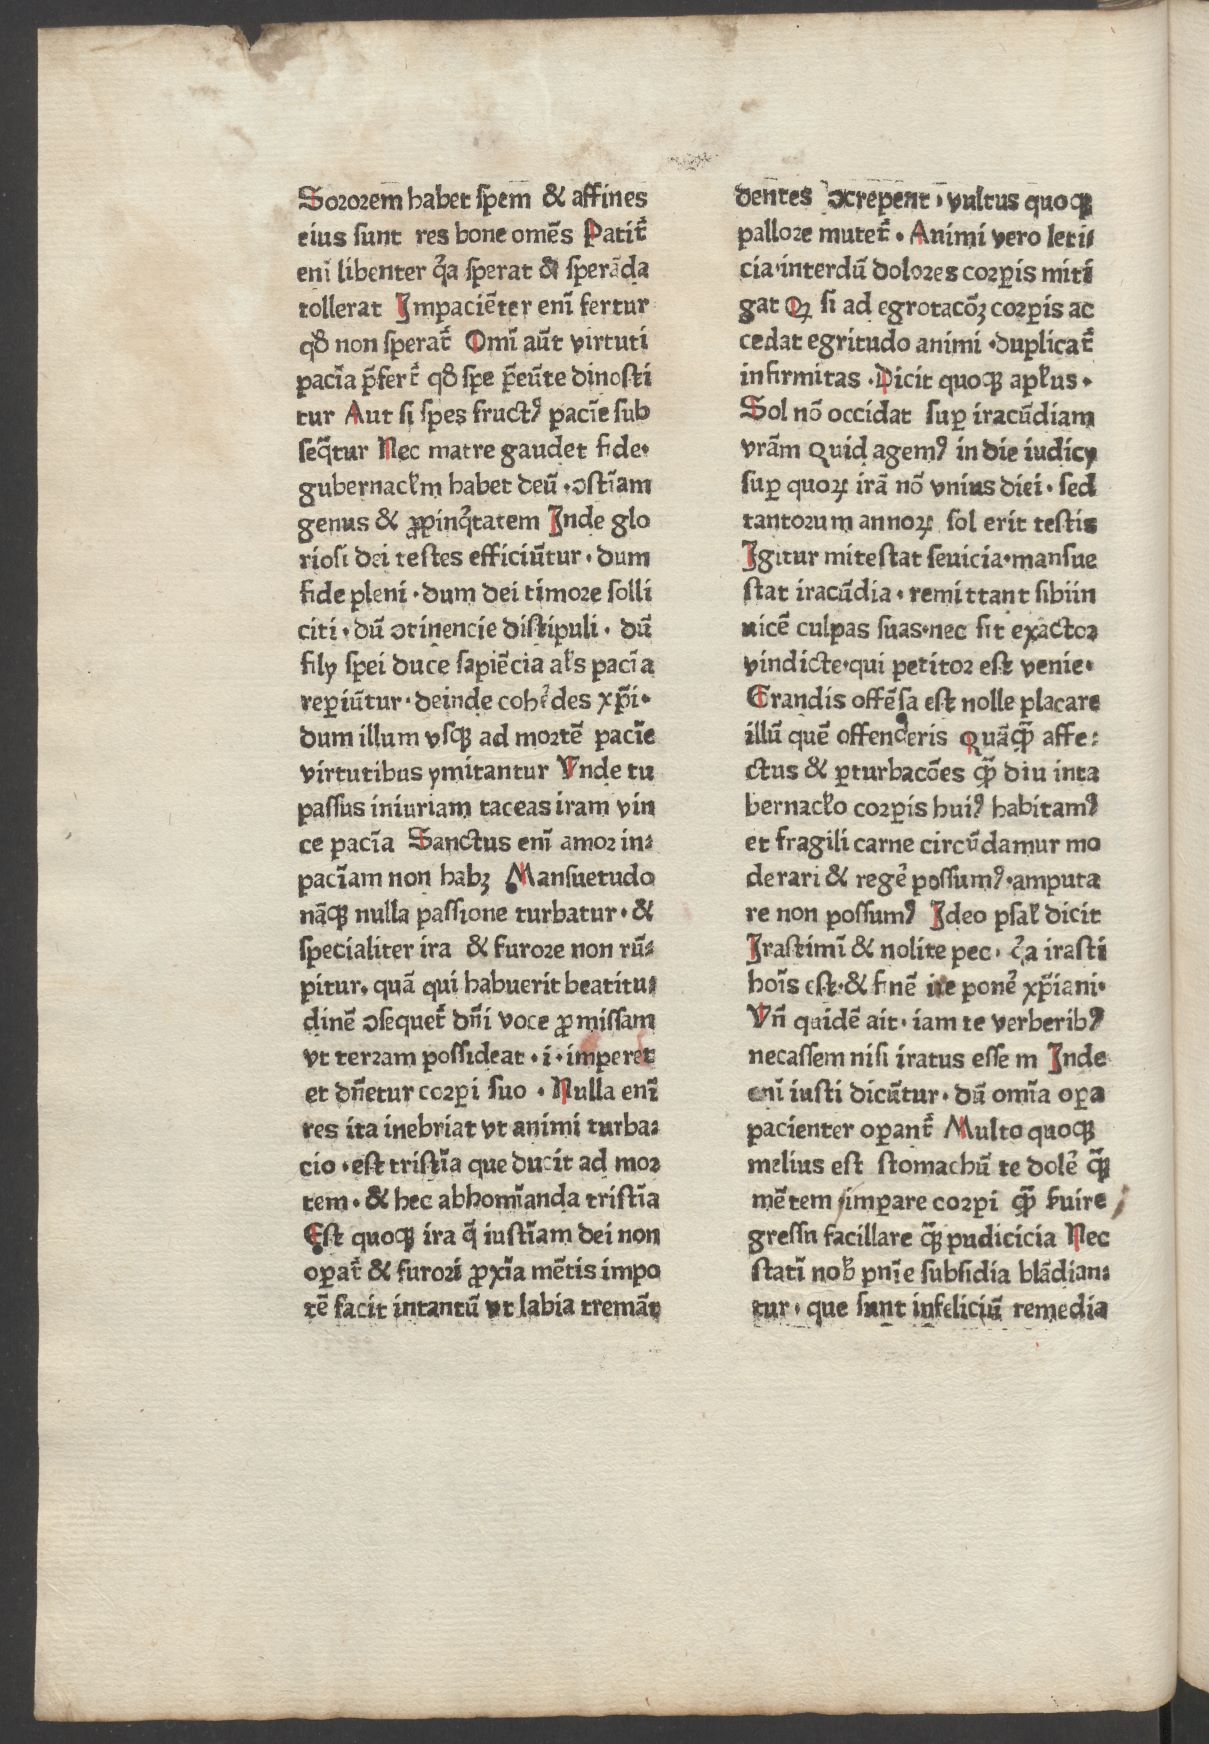 Sororem habet spem & affines
eius sunt res bone omēs Patit᷑
enī libenter qͥa sperat & sperāda
tollerat Impaciēter enī fertur
qð non sperat᷑ Omī aūt virtuti
pacīa p̄fert᷑ qð spe p̄eūte dinosti
tur Aut si spes fructꝰ pacīe sub
seq̄tur Nec matre gaudet fide·
gubernacl̄m habet deū · ↄstīam
genus & ꝓpinqͥtatem Inde glo
riosi dei testes efficiūtur · dum
fide pleni · dum dei timore solli
citi · dū ↄtinencie discipuli · dū
fily spei duce sapiēcia al̄s pacīa
reperiūtur · deinde coheͬdes xp̄i·
dum illum vsqꝫ ad mortē pacīe
virtutibus ymitantur Vnde tu
passus iniuriam taceas iram vin
ce pacīa Sanctus enī amor in⸗
pacīam non habꝫ Mansuetudo
nāqꝫ nulla passione turbatur · &
specialiter ira & furore non rū⸗
pitur· quā qui habuerit beatitu⸗
dinē ↄsequet᷑ dn̄i voce ꝓmissam
vt terram possideat · i · imperet
et dn̄etur corpi suo · Nulla enī
res ita inebriat vt animi turba⸗
cio · est tristīa que ducit ad mor
tem · & hec abhomīanda tristīa
Est quoqꝫ ira q̄ iustīam dei non
operat᷑ & furori ꝓxīa mētis impo
tē facit intantū vt labia tremāt
dentes ↄcrepent · vultus quoqꝫ
pallore mutet᷑ · Animi vero leti⸗
cia·interdū dolores corꝑis miti
gat Qꝛ si ad egrotacōꝫ corꝑis ac
cedat egritudo animi ·duplicat᷑
infirmitas · Dicit quoqꝫ apl̄us ·
Sol nō occidat suꝑ iracūdiam
vrām Quid agemꝰ in die iudicy
suꝑ quoꝝ irā nō vnius diei · sed
tantorum annoꝝ sol erit testis
Igitur mitestat seuicia·mansue
stat iracūdia · remittant sibiin
uicē culpas suas·nec sit exactor
vindicte·qui petitor est venie·
Grandis offēsa est nolle placare
illū quē offenderis Quāqꝫ̄ affe⸗
ctus & ꝑturbacōes qꝫ̄ diu inta
bernacl̄o corꝑis huiꝰ habitamꝰ
et fragili carne circūdamur mo
derari & regeͬ possumꝰ·amputa
re non possumꝰ Ideo psal̄ dicit
Irascimī & nolite pec · qͥa irasci
hoīs est·& finē ire poneͬ xp̄iani·
Vn̄ quidē ait · iam te verberibꝰ
necassem nisi iratus esse m Inde
enī iusti dicūtur · dū omīa oꝑa
pacienter oꝑant᷑ Multo quoqꝫ
melius est stomachū te doleͬ qꝫ̄
mētem imꝑare corpi qꝫ̄ ẜuire
gressu facillare qꝫ̄ pudicicia Nec
statī nob̄ pnīe subsidia blādian⸗
tur · que sunt infeliciū remedia